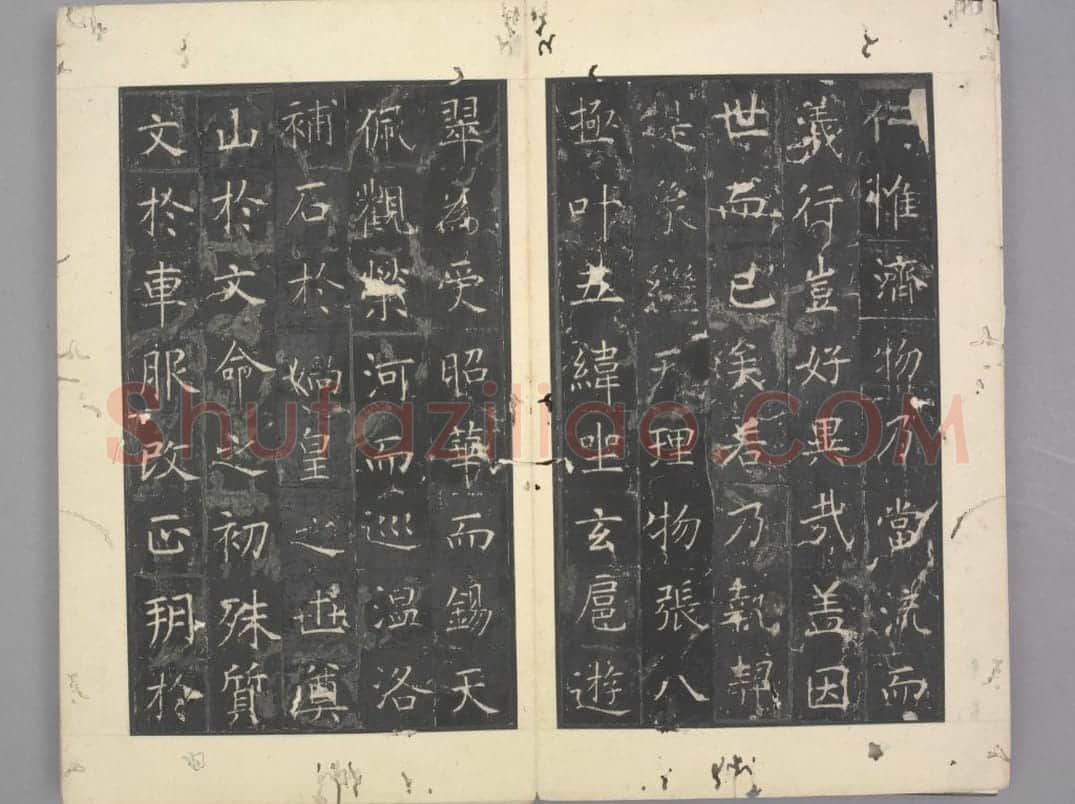 仁惟濟物 當流而
義行豈好異哉盖因
世而已矣若乃執契
提象繼天理物張八
極叶五緯坐玄扈遊
翠為受昭華而錫天
佩觀榮河而巡溫洛
補石於媧皇之世奠
山於文命之初殊質
文於車服改正朔於
Shufaziliao.COM